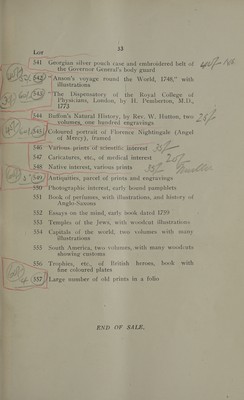 13
Lot
341 Georgian silver pouch case and embroidered belt of
the Governor General's body guard
342 "Anson's voyage round the World, 1748," with
illustrations
343 "The Dispensatory of the Royal College of
Physicians, London, by H. Pemberton, M.D.,
1773
344 Buffon's Natural History, by Rev. W. Hutton, two
volumes, one hundred engravings
345 Coloured portrait of Florence Nightingale (Angel
of Mercy), framed
346 Various prints of scientific interest 35/-
347 Caricatures, etc., of medical interest
348 Native interest, various prints
349 Antiquities, parcel of prints and engravings
350 Photographic interest, early bound pamphlets
351 Book of perfumes, with illustrations, and history of
Anglo-Saxons
352 Essays on the mind, early book dated 1759
353 Temples of the Jews, with woodcut illustrations
354 Capitals of the world, two volumes with many
illustrations
355 South America, two volumes, with many woodcuts
showing customs
356 Trophies, etc., of British heroes, book with
fine coloured plates
357 Large number of old prints in a folio
END OF SALE.